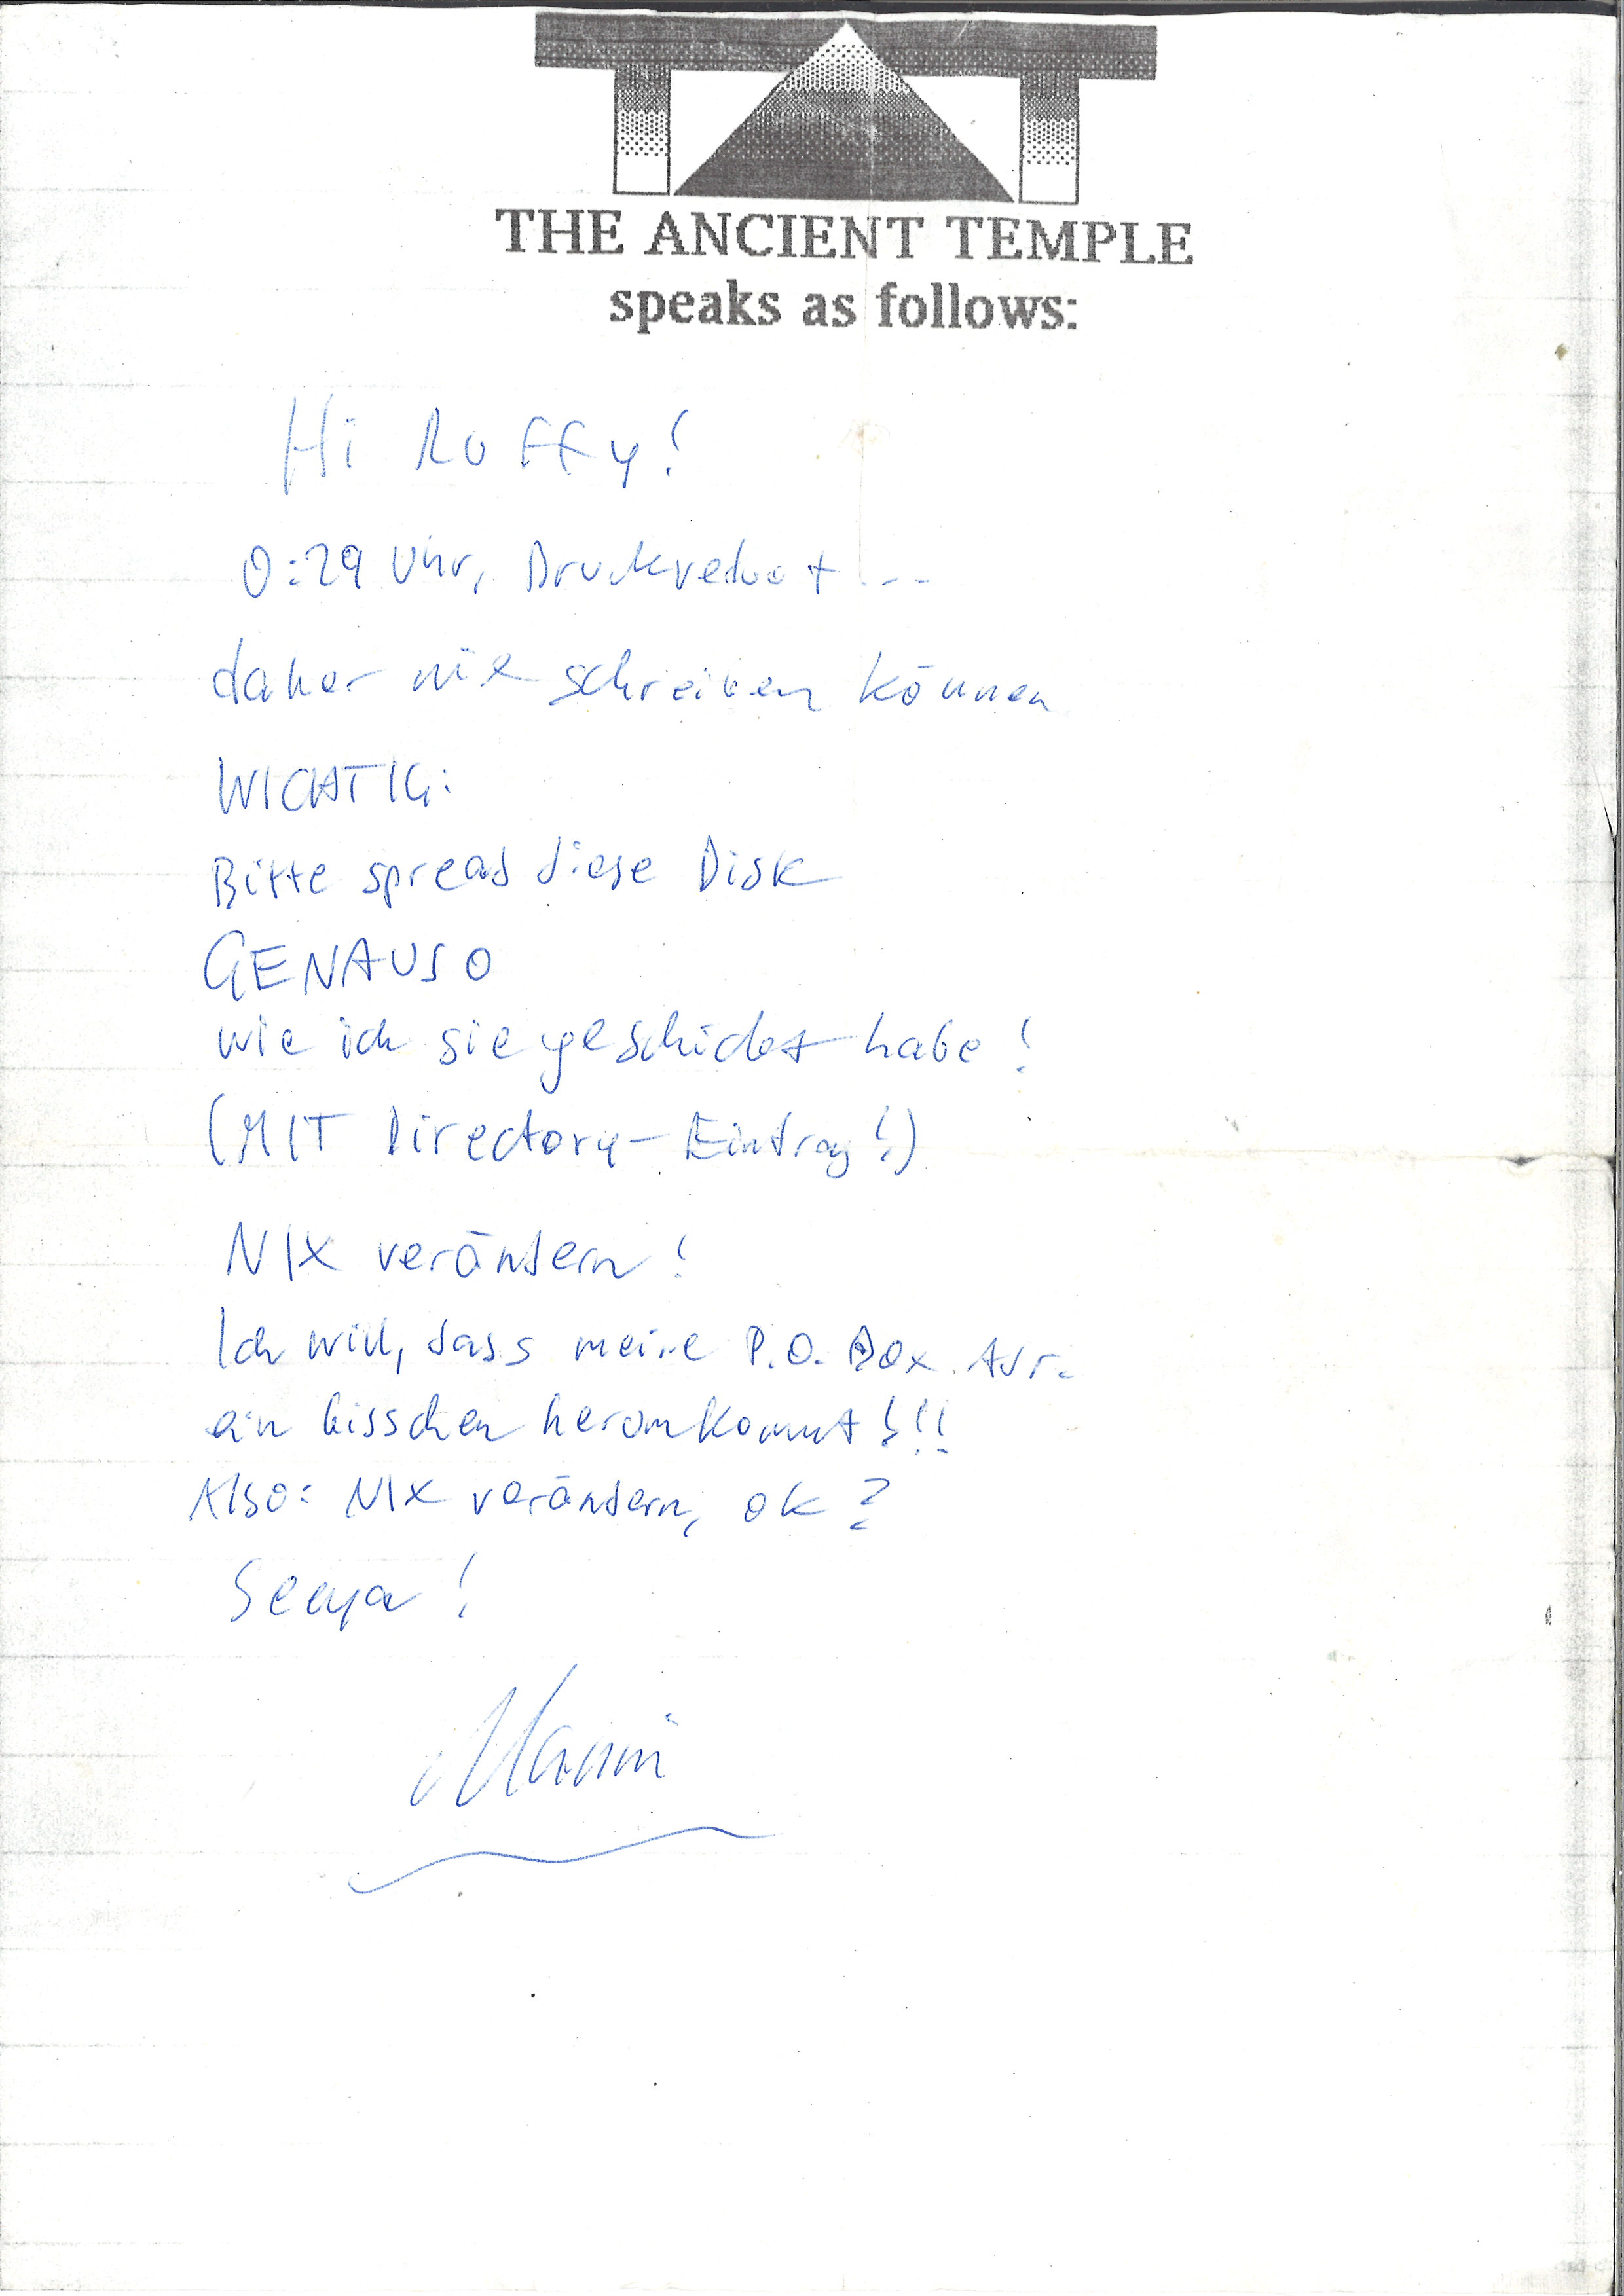 TAT
THE ANCIENT TEMPLE
speaks as follows:
Hi Ruffy!
0:29 Uhr, Druckverbot...
daher nie schreiben können
WICHTIG:
Bitte spread diese Disk
GENAUSO
wie ich sie geschickt habe!
(MIT Directory-Eintrag!)
NIX verändern!
Ich will, dass meine P.O. Box Adr.
ein bisschen herumkommt!!!
Also: NIX verändern, ok?
Seeya!